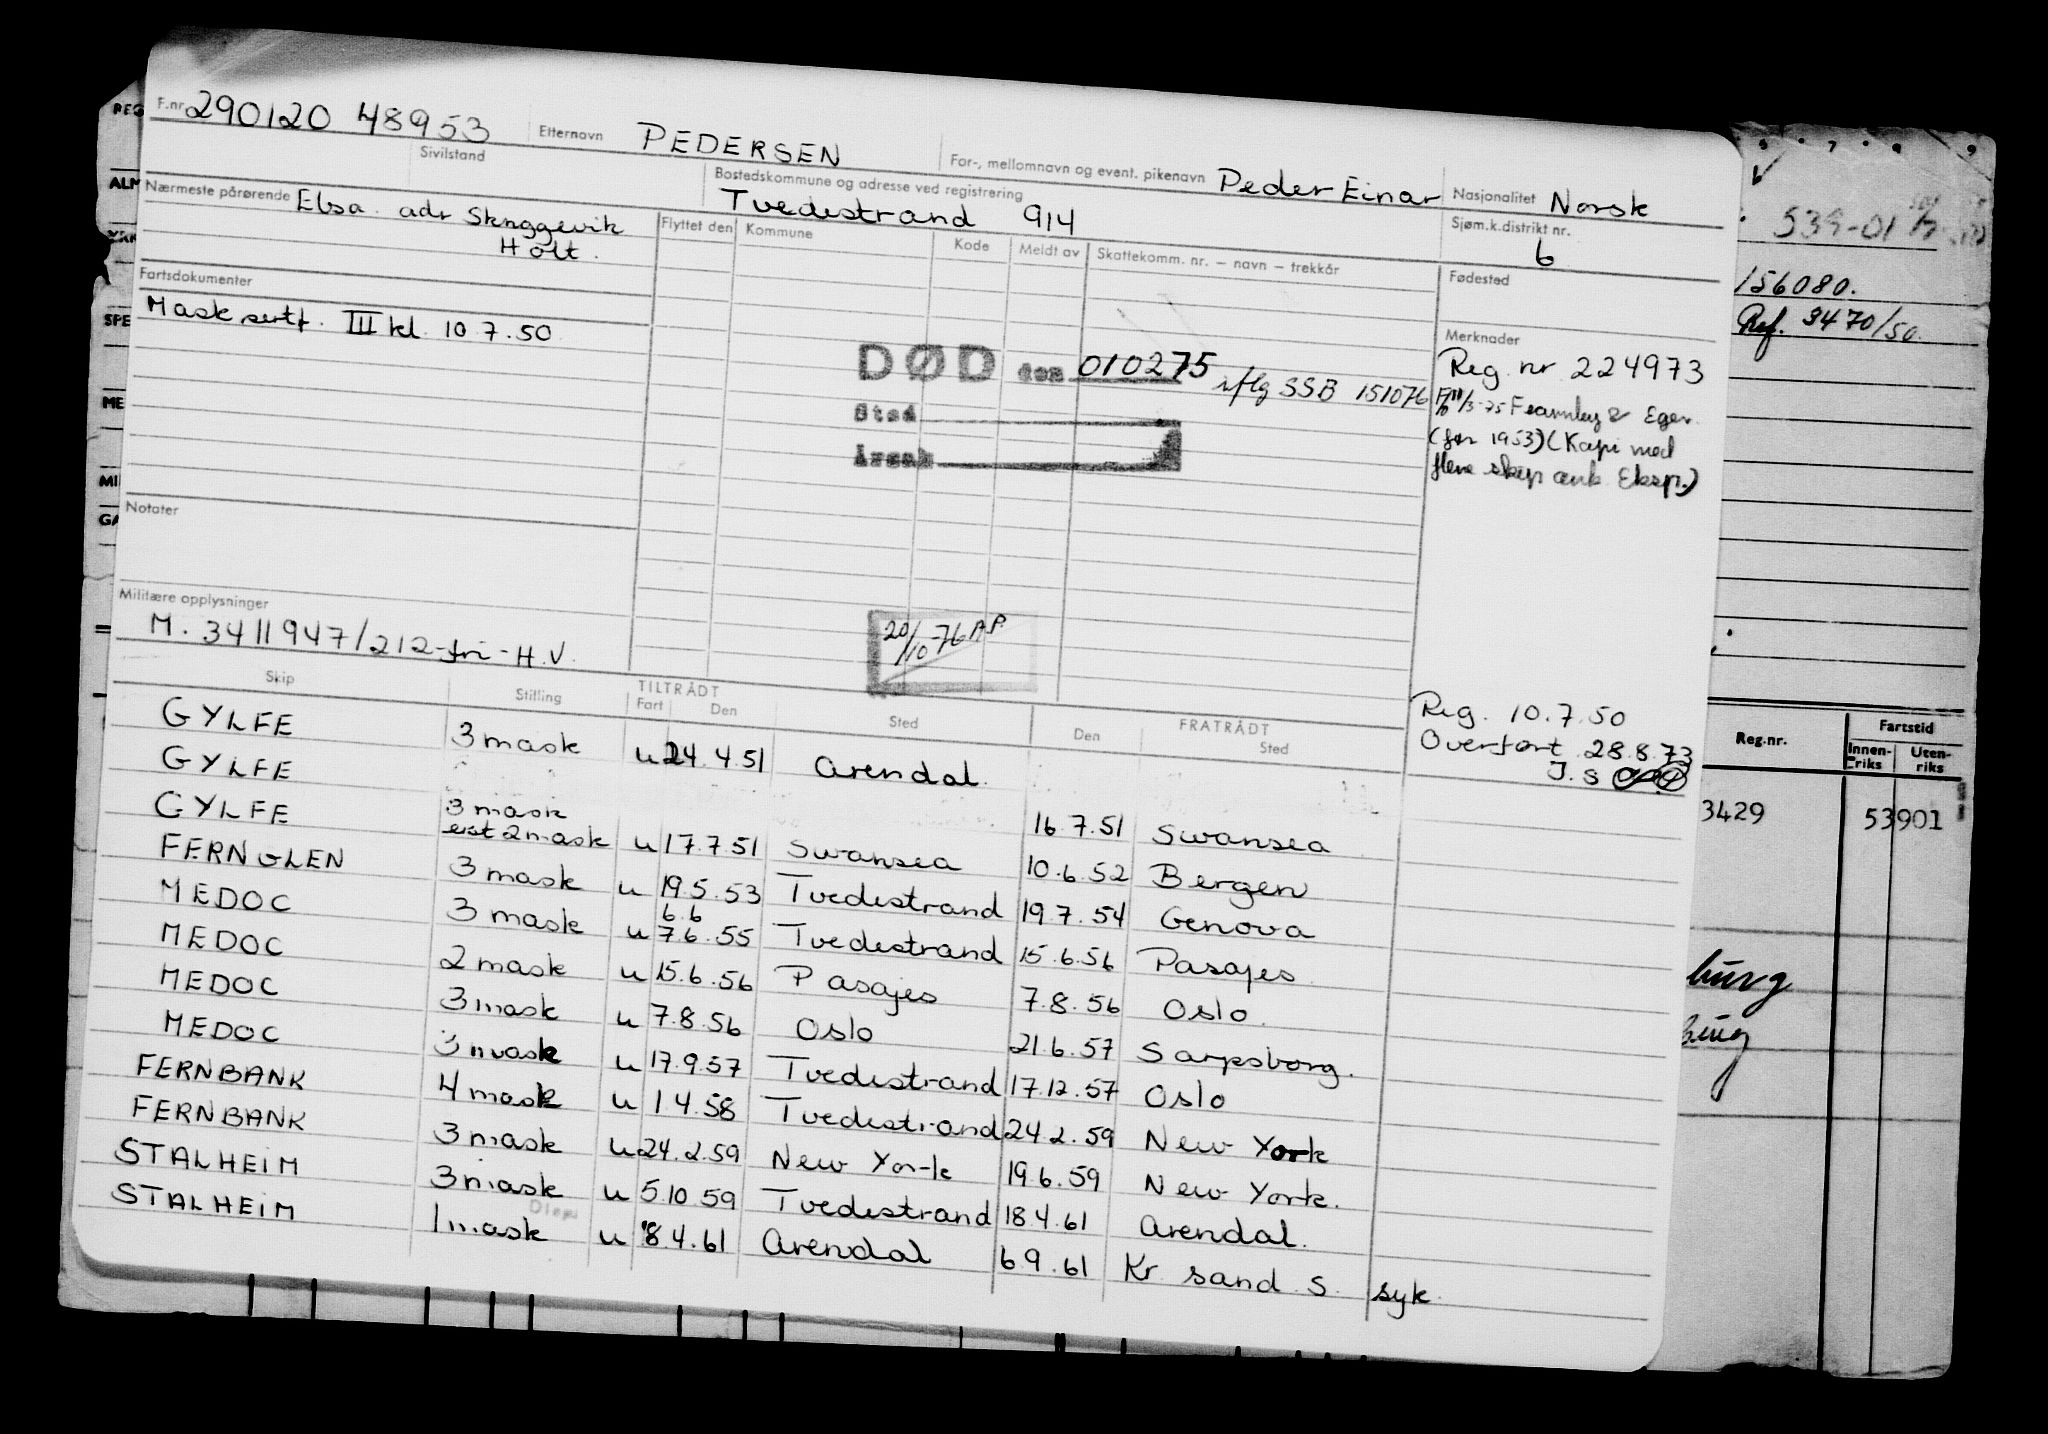 F.nr. 290120 48953 Etternavn PEDERSEN For-, mellomnavn og event. pikenavn Peder Einar Nasjonalitet Norsk
Sivilstand Bostedskommune og adresse ved registrering Tvedestrand 914 Sjøm.k.distrikt nr. 6
Nærmeste pårørende Elsa adr
Holt.
Flyttet den Kommune Kode Meldt av Skattekomm. nr. – navn – trekkår Fødested
Fartsdokumenter
Mask sertf. III kl. 10.7.50
DØD den 010275 iflg SSB 151076
Sted
Årsak
Merknader
Reg. nr 224973
Fearnley & Eger
(før 1953) (Kopi med
flere skip ank Eksp.)
Notater
Militære opplysninger
M. 3411947/212-fri-H.V.
20/10-76 A.P
Reg. 10.7.50
Overført 28.8.73
J.S
Skip Stilling TILTRÅDT Fart Den Sted FRATRÅDT Den Sted
GYLFE 3 mask u 24.4.51 Arendal
GYLFE 3 mask 16.7.51 Swansea
GYLFE erst 2 mask u 17.7.51 Swansea 10.6.52 Bergen
FERNGLEN 3 mask u 19.5.53 Tvedestrand 19.7.54 Genova
6.6
MEDOC 3 mask u 7.6.55 Tvedestrand 15.6.56 Pasajes
MEDOC 2 mask u 15.6.56 Pasajes 7.8.56 Oslo.
MEDOC 3 mask u 7.8.56 Oslo 21.6.57 Sarpsborg.
MEDOC 3 mask u 17.9.57 Tvedestrand 17.12.57 Oslo
FERNBANK 4 mask u 1.4.58 Tvedestrand 24.2.59 New York
FERNBANK 3 mask u 24.2.59 New York 19.6.59 New York.
STALHEIM 3 mask u 5.10.59 Tvedestrand 18.4.61 Arendal.
STALHEIM 1 mask u 18.4.61 Arendal 6.9.61 Kr. sand. S. syk.
REG
ALM
YRK
SPE
ME
MI
GA
7 8 9
539-01
156080.
Ref. 3470/50.
Reg.nr. Fartstid
Innenriks Utenriks
3429 53901
burg
burg